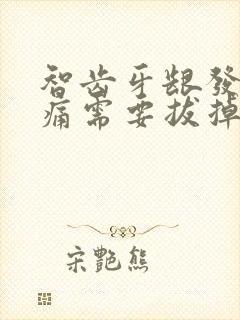 智齿牙龈發
痛需要拔掉
宋艷熊